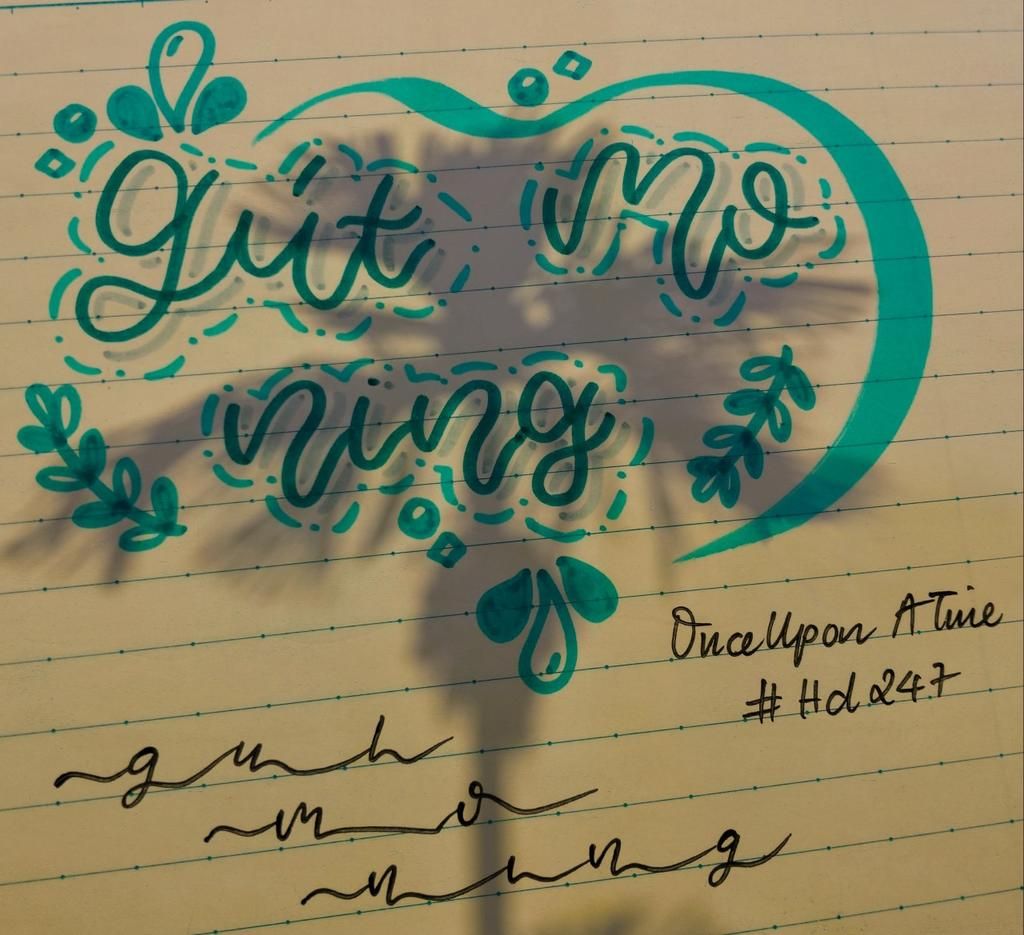 gút mo
ning
Once Upon A Time
#Hd247
guh
mo
ning